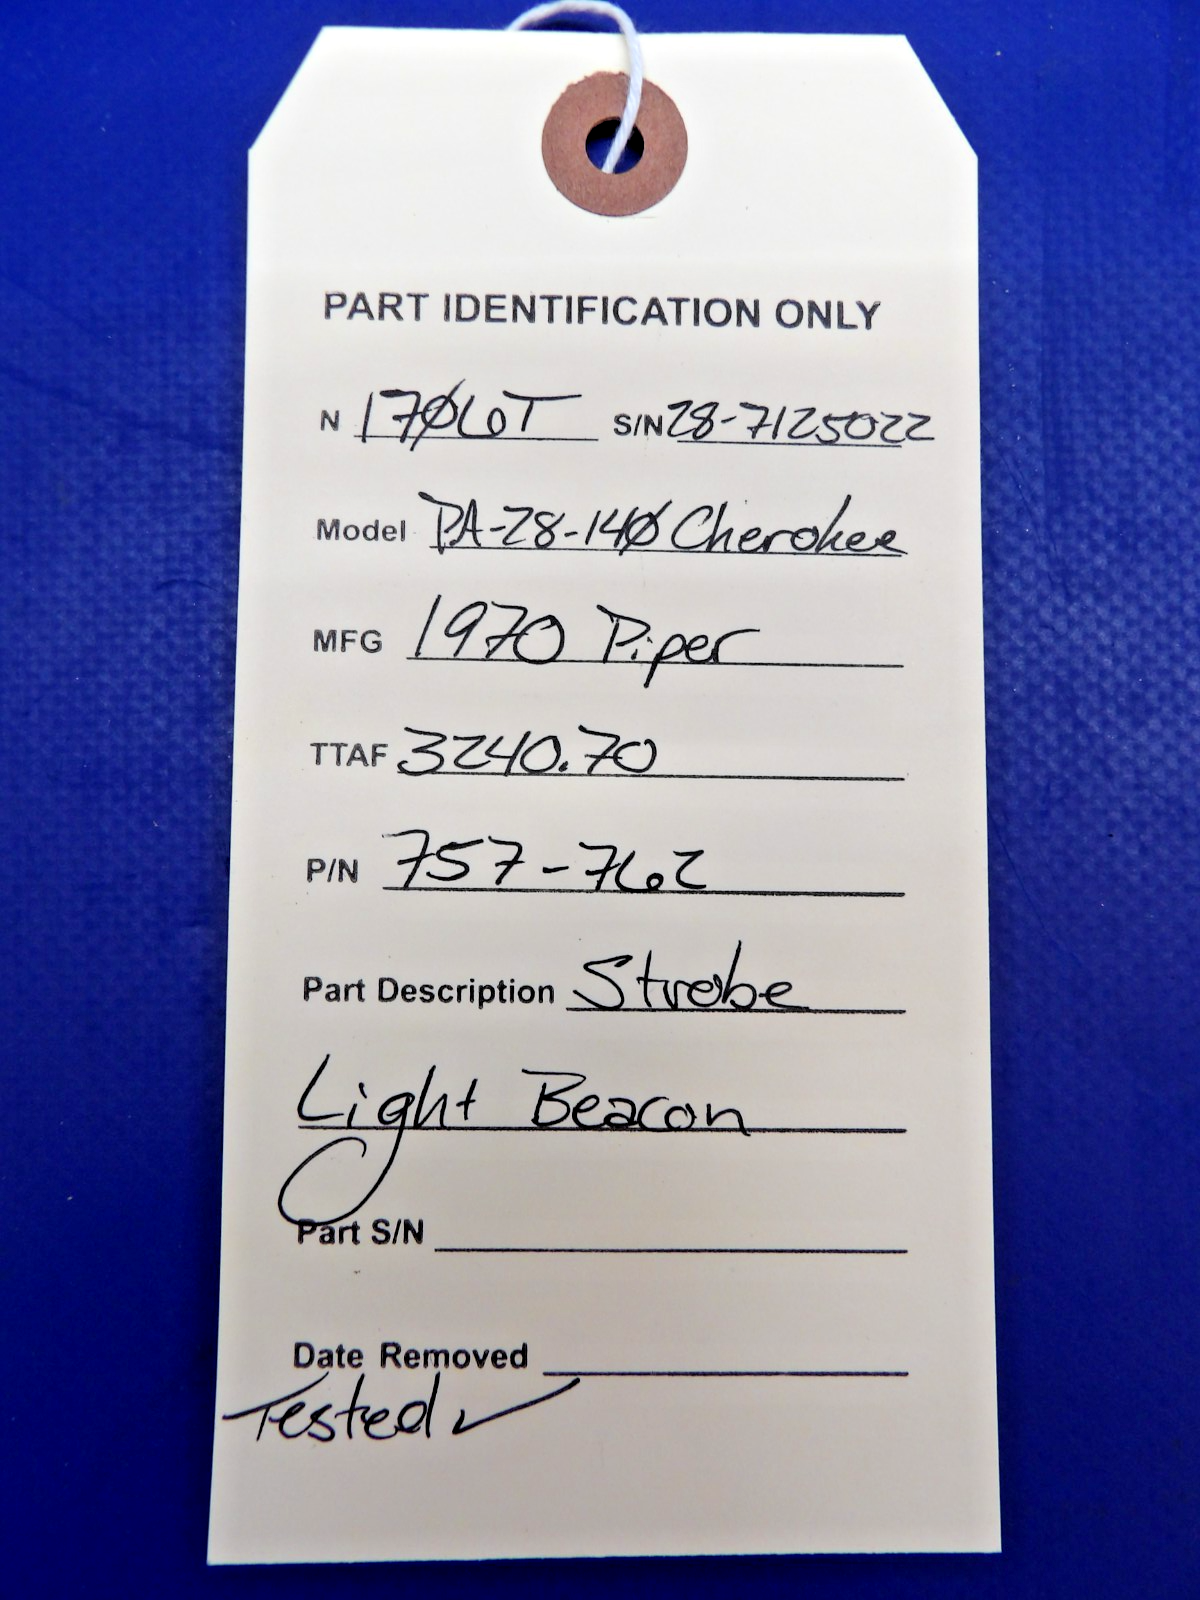 PART IDENTIFICATION ONLY
N 17Ø6T S/N 28-7125022
Model PA-28-14Ø Cherokee
MFG 1970 Piper
TTAF 3240.70
P/N 757-762
Part Description Strobe
Light Beacon
Part S/N
Date Removed
Tested ✓